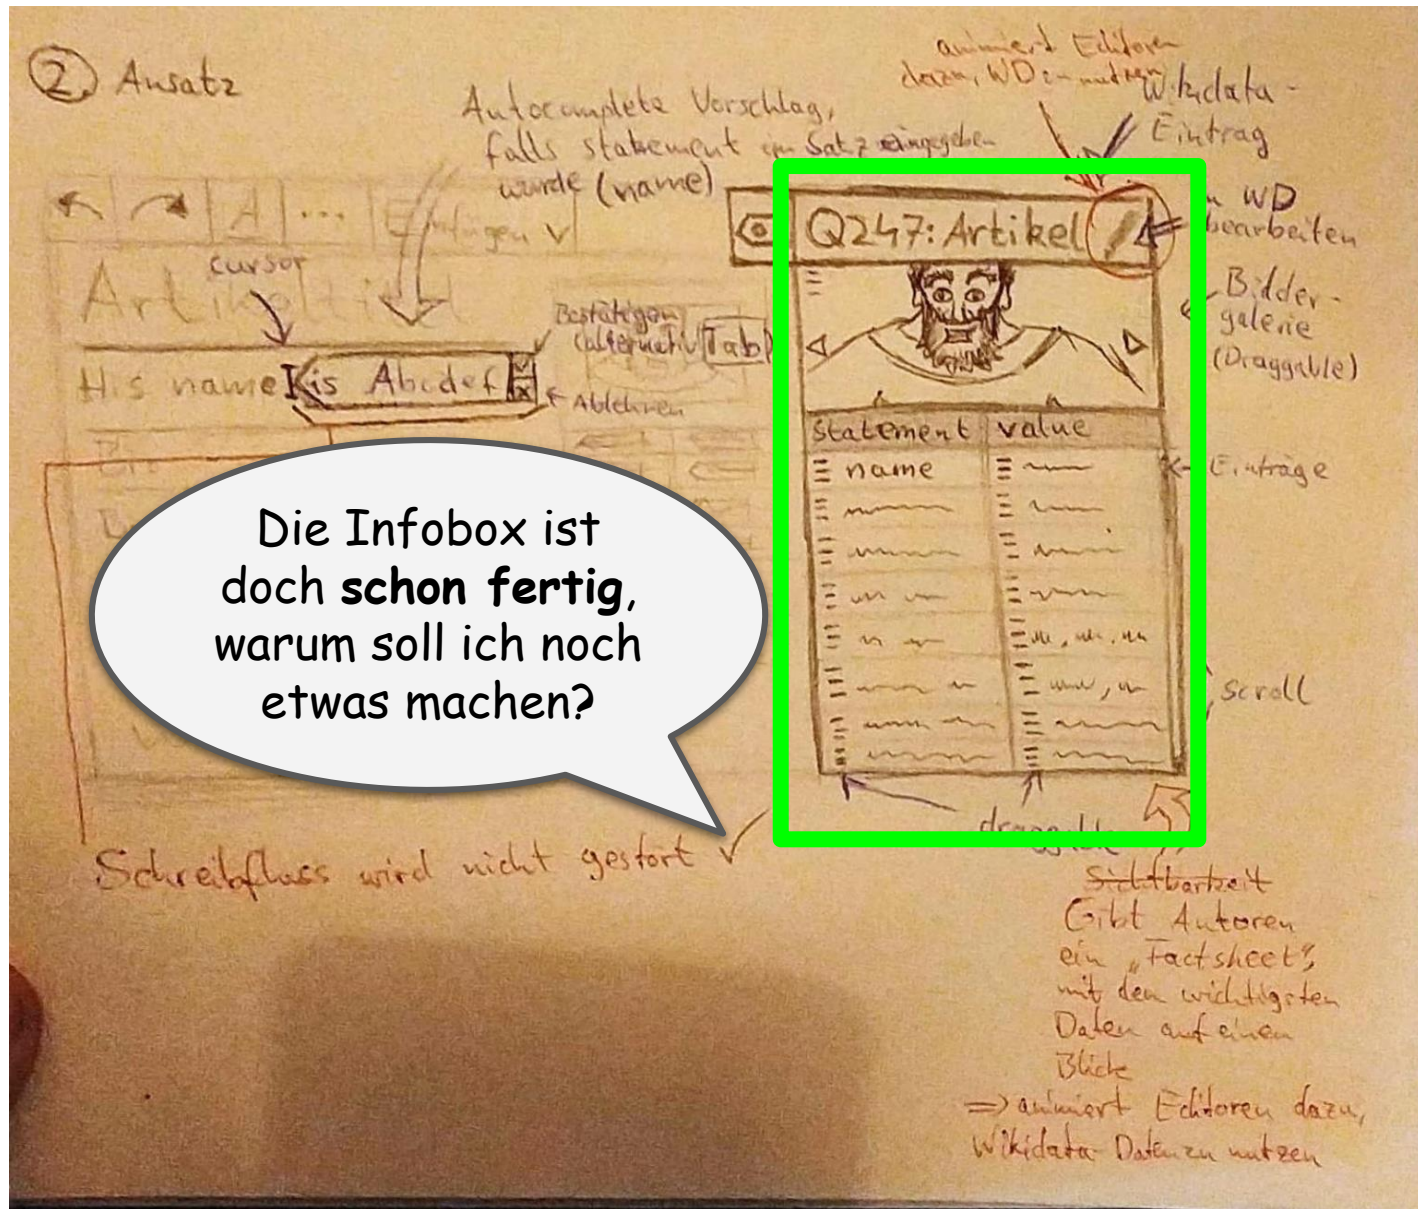 2. Ansatz
Autocomplete Vorschlag,
falls statement im Satz eingegeben
wurde (name)
animiert Editoren
dazu, WD zu nutzen
Wikidata-
Eintrag
in WD
bearbeiten
A ... Einfügen
cursor
Artikeltitel
Bestätigen
(alternativ Tab)
His name is Abcdef
Ablehnen
Q247: Artikel
Bilder-
galerie
(Draggable)
statement value
name
Einträge
Die Infobox ist
doch schon fertig,
warum soll ich noch
etwas machen?
scroll
draggable
Schreibfluss wird nicht gestört ✓
Sichtbarkeit
Gibt Autoren
ein „Factsheet“,
mit den wichtigsten
Daten auf einen
Blick
=> animiert Editoren dazu,
Wikidata-Daten zu nutzen